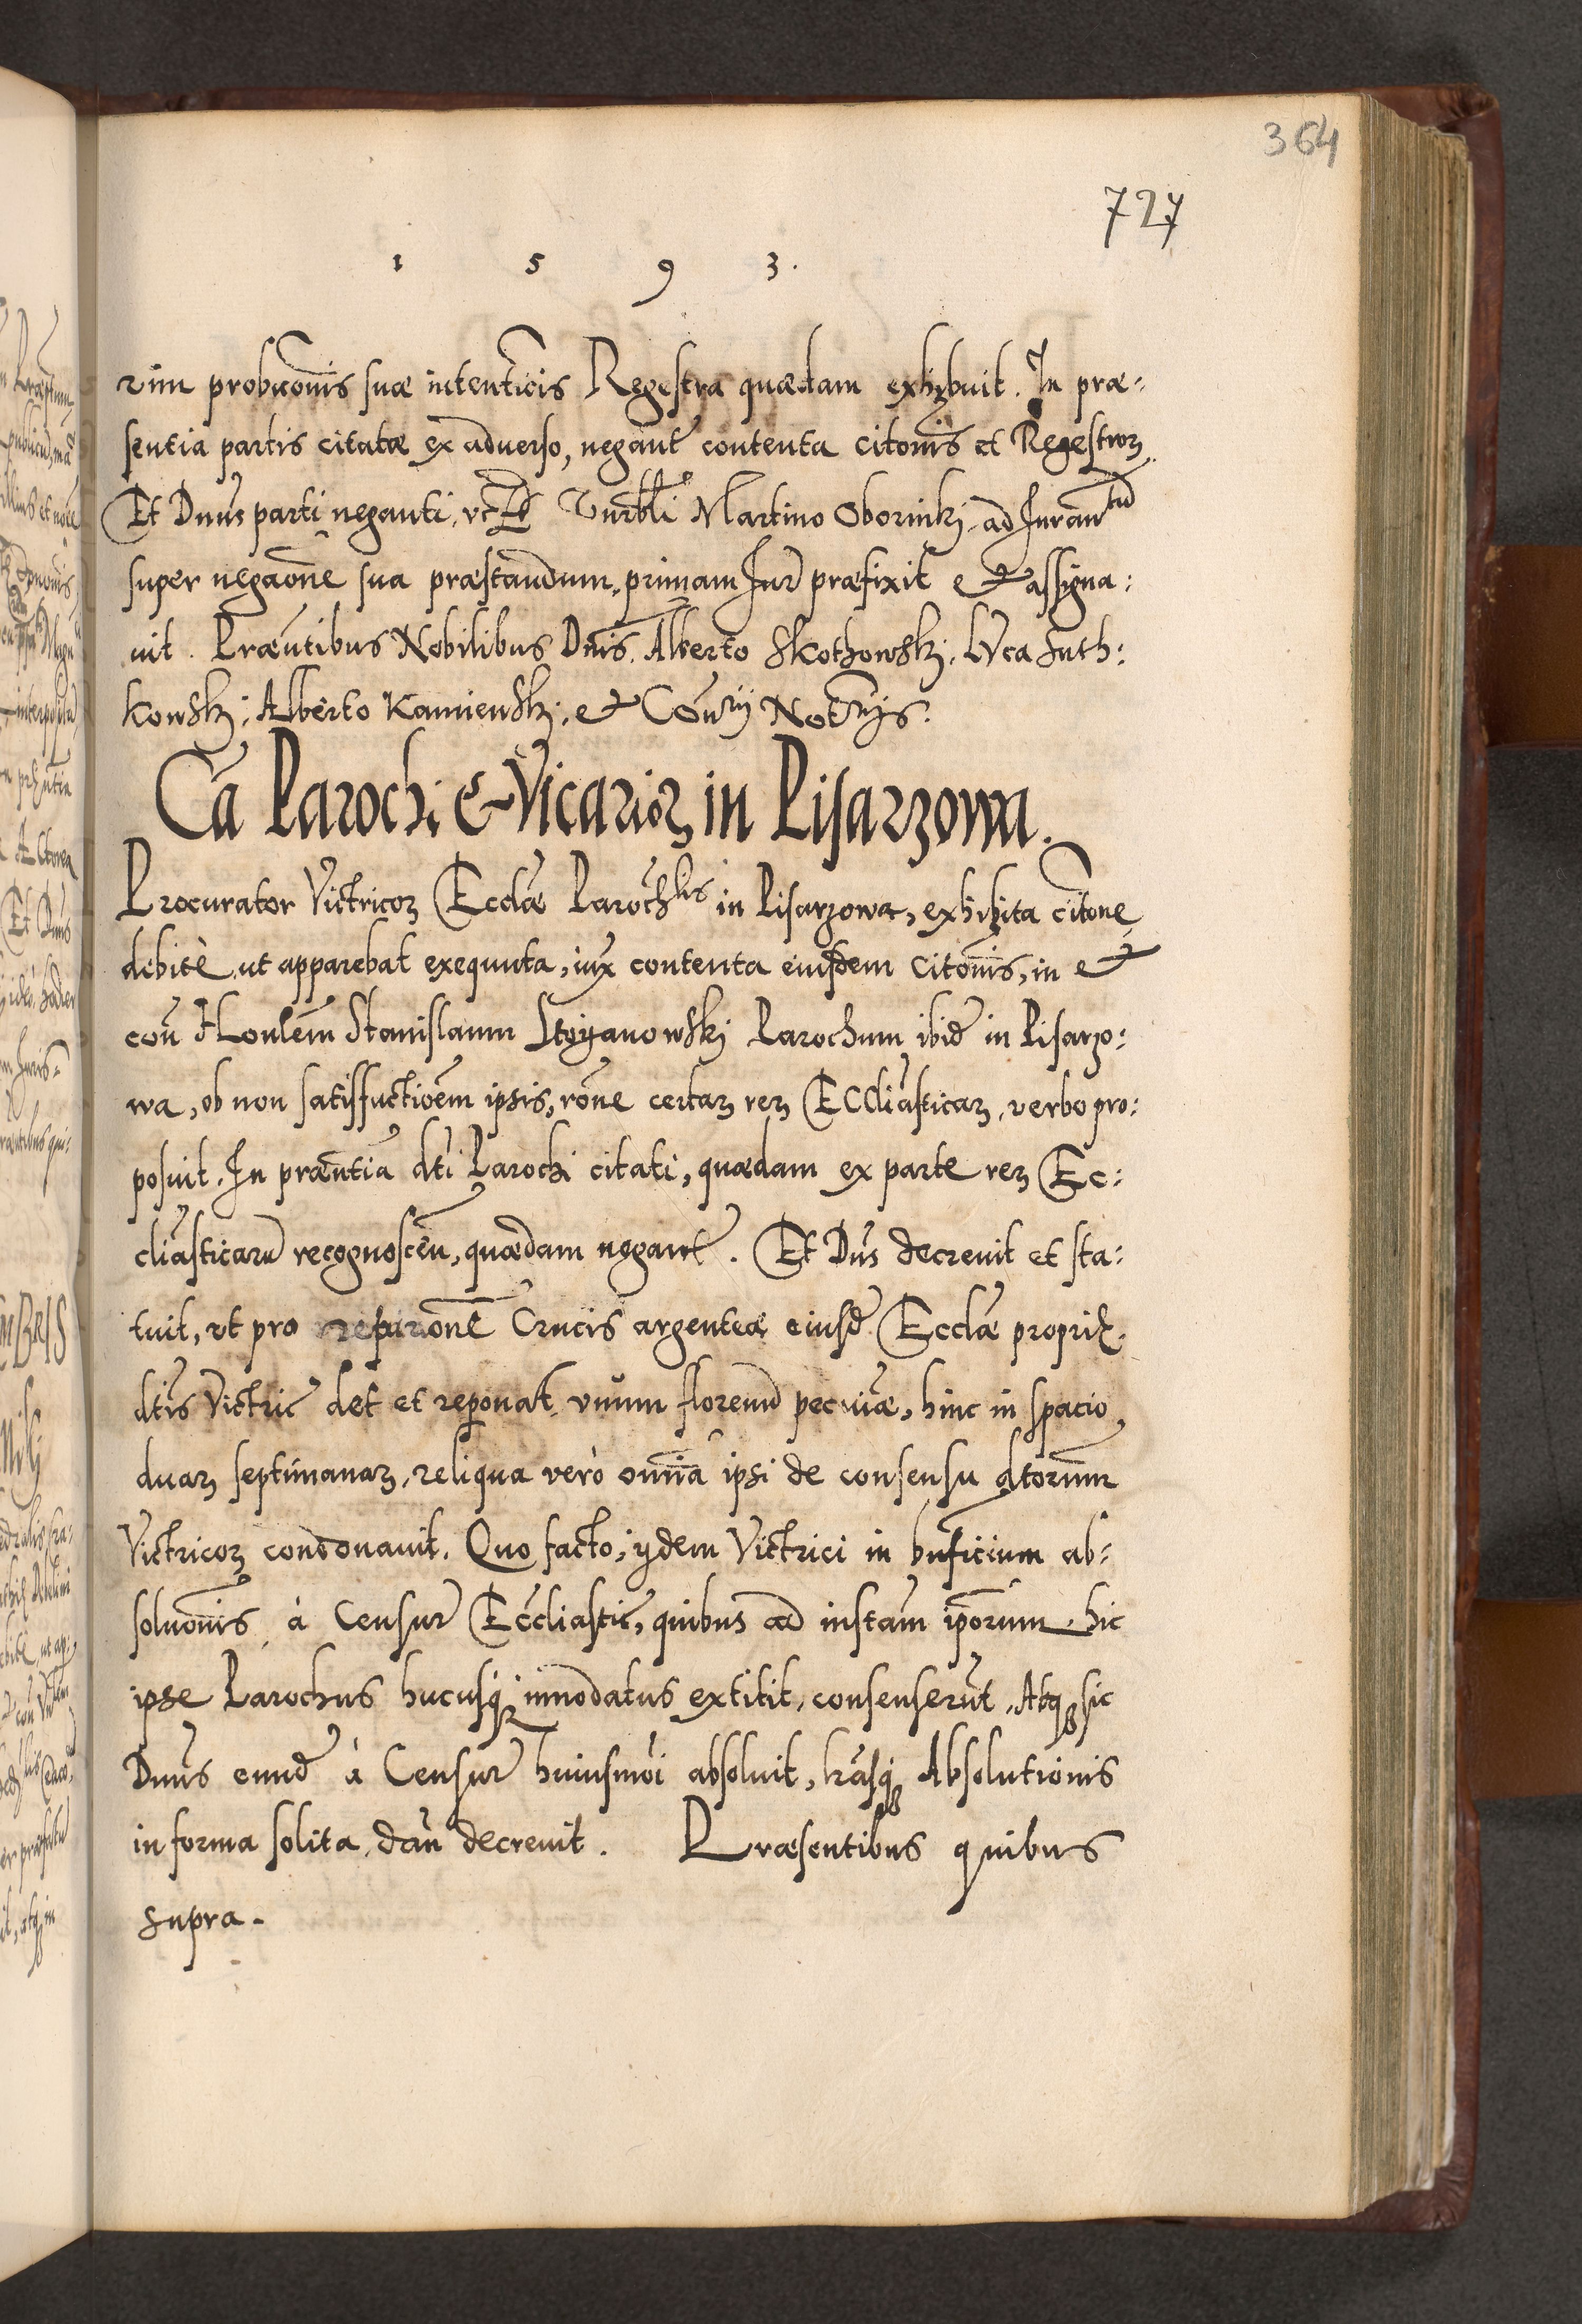 364
727
1 5 9 3.
vim probaconis suæ intentionis Regestra quædam exhibuit. In præ:
sentia partis citatæ ex adverso, negant contenta citonis et Regestroꝝ
Et Dnus parti neganti, Martino Obornikj, ad Iuran tũ
super negaone sua præstandum, primam Iur præfixit et assigna:
uit. Præntibus Nobilibus Dnis. Alberto Skothowskj, LVca Suth:
kowskj, Alberto Kamienskj, et Conrij Notrijs.
Ca Parochi et Vicarioꝝ in Pisarzowa.
Procurator Victricoꝝ Ecclæ Paroch lis in Pisarzowa, exhibita citone
debitè ut apparebat exequuta, iux contenta eiusdem citonis, in et
con Honlem Stanislaum Stoyanowskj Parochum ibid in Pisarzo:
wa, ob non satisfactioem ipsis, rone certaꝝ reꝝ Eccliasticaꝝ, verbo pro:
posuit. In præntia dti Parochi citati, quædam ex parte reꝝ Ec:
cliasticarũ recognoscen, quædam negant. Et Dus decrevit et sta:
tuit, vt pro reparone Crucis argenteæ eiusd Ecclæ
dtis Victric det et reponat vnum florenũ pecuiæ, hinc in spacio
duaꝝ septimanaꝝ, reliqua verò omnia ipsi de consensu dtorum
Victricoꝝ condonauit. Quo facto, ijdem Victrici in bnficium ab:
soluonis, à Censur Eccliastic, quibus ad instam iporum, hic
ipse Parochus hucusq innodatus extitit, consenserunt. Atq sic
Dnus eund à Censur huiusmoi absoluit, lrasq Absolutionis
in forma solita, dan decrevit. Præsentibus quibus
supra.